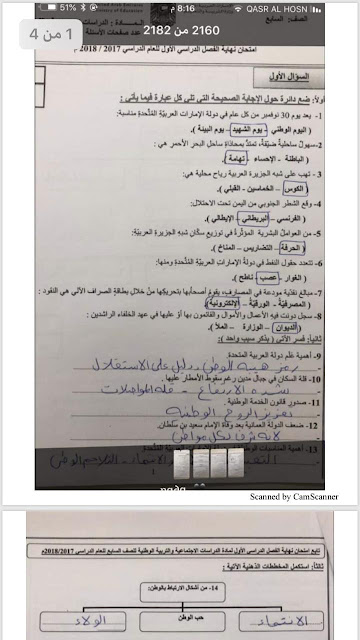 51%
8:16 م
QASR AL HOSN
1 من 4
2160 من 2182
الصف: السابع
المادة: الدراسات
عدد صفحات الأسئلة
امتحان نهاية الفصل الدراسي الأول للعام الدراسي 2017 / 2018م
السؤال الأول
أولاً: ضع دائرة حول الإجابة الصحيحة التي تلي كل عبارة فيما يأتي:
1- يعد يوم 30 نوفمبر من كل عام في دولة الإمارات العربيّة المُتّحدة مناسبة:
( اليوم الوطني - يوم الشهيد - يوم البيئة ).
2-سهولٌ ساحليةٌ ضيّقةٌ، تمتدُّ بمحاذاة ساحل البحر الأحمر هي :
( الباطنة - الإحساء - تهامة ).
3- تهب على شبه الجزيرة العربية رياح محلية هي:
( الكوس - الخماسين - القبلي ).
4- وقع الشطر الجنوبي من اليمن تحت الاحتلال:
( الفرنسي - البريطاني - الإيطالي ).
5- من العوامل البشرية المؤثّرة في توزيع سكّان شبه الجزيرة العربيّة:
( الحرفة - التضاريس - المناخ ).
6- تتعدد حقول النفط في دولة الإمارات العربيّة المُتّحدة ومنها:
( الغوار - عصب - ناطح ).
7- مبالغ نقدية مودعة في المصارف، يقوم أصحابها بتحريكها من خلال بطاقة الصراف الآلي هي النقود :
( المصرفيّة - الورقيّة - الإلكترونية ).
8- سجل دونت فيه الأعمال والأموال والقائمون بها أو عليها في عهد الخلفاء الراشدين :
( الديوان - الوزارة - العلا ).
ثانياً: فسر الآتي ( بذكر سبب واحد ):
9- أهمية علم دولة العربية المتحدة.
رمز هيبة الوطن - دليل على الاستقلال
10- قلة السكان في جبال مدين رغم سقوط الأمطار عليها.
شدة الارتفاع - قلة المواصلات
11- صدور قانون الخدمة الوطنية.
تعزيز الروح الوطنية
12- ضعف الدولة العمانية بعد وفاة الإمام سعيد بن سلطان.
13- أهمية المناسبات الوطنية المتّحدة.
التلاحم الوطني
Scanned by CamScanner
تابع امتحان نهاية الفصل الدراسي الأول لمادة الدراسات الاجتماعية والتربية الوطنية للصف السابع للعام الدراسي 2017/2018م
ثالثاً: استكمل المخططات الذهنية الآتية :
14- من أشكال الارتباط بالوطن:
الانتماء
حب الوطن
الولاء